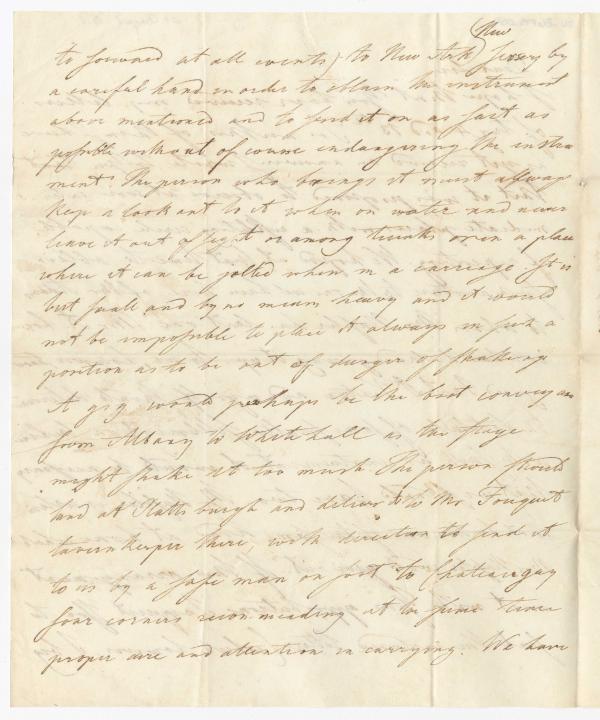 New
to forward at all events) to New Ark Jersey by
a careful hand in order to obtain the instrument
above mentioned and to send it on as fast as
possible without of course endangering the instru
ment. The person who brings it must allways
keep a look out to it when on water and never
leave it out of sight or among trunks or in a place
where it can be jolted when in a carriage. It is
but small and by no means heavy and it would
not be impossible to place it always in such a
position as to be out of danger of shaking
A gig would perhaps be the best conveyan
from Albany to Whitehall as the stage
might shake it too much The person should
land at Plattsburgh and deliver it to Mr. Fouquet
tavernkeeper there, with direction to send it
to us by a safe man on foot to Chateaugay
four corners recommending at the same time
proper care and attention in carrying. We have